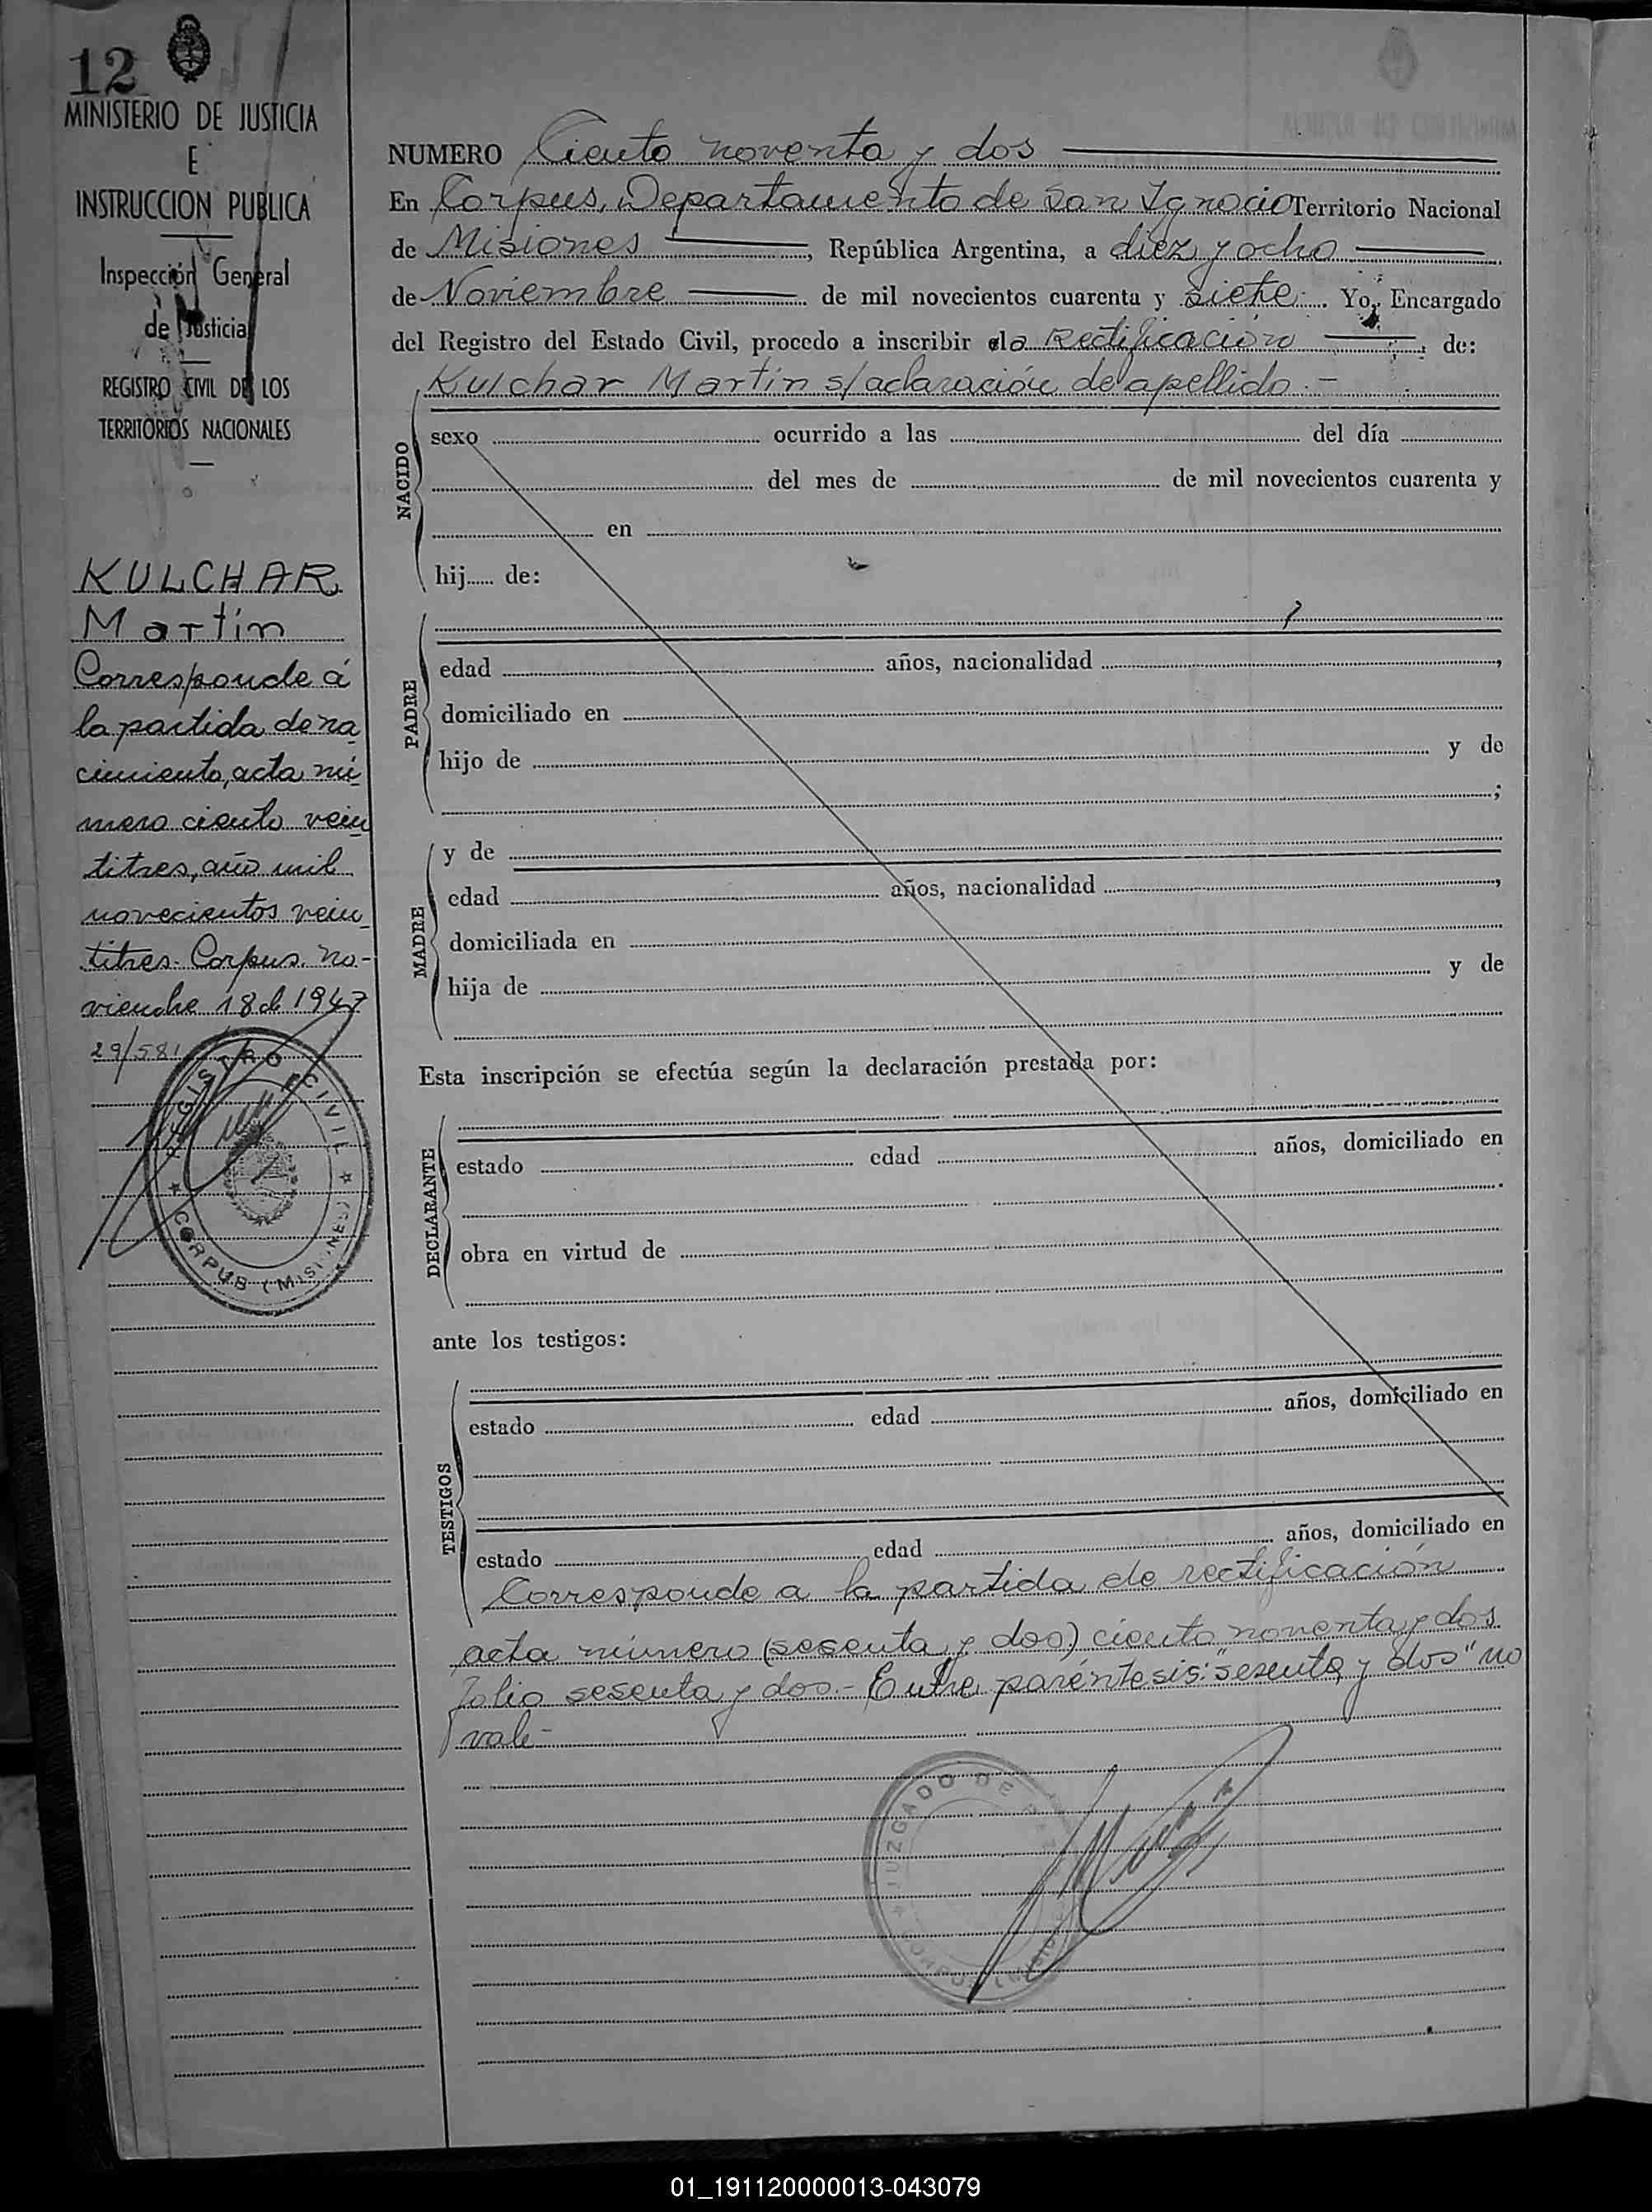 12
MINISTERIO DE JUSTICIA
E
INSTRUCCION PUBLICA
Inspección General
de Justicia
REGISTRO CIVIL DE LOS
TERRITORIOS NACIONALES
KULCHAR
Martin
Corresponde á
la partida de na
cimiento, acta nú
mero ciento vein
titres, año mil
novecientos vein
titres. Corpus. No-
viembre 18 de 1947
29/581
REGISTRO CIVIL
CORPUS (MISIONES)
NUMERO Ciento noventa y dos
En Corpus, Departamento de San Ignacio Territorio Nacional
de Misiones, República Argentina, a diez y ocho
de Noviembre de mil novecientos cuarenta y siete. Yo, Encargado
del Registro del Estado Civil, procedo a inscribir la Rectificación de:
Kulchar Martin s/aclaración de apellido.-
NACIDO
sexo ocurrido a las del día
del mes de de mil novecientos cuarenta y
en
hij de:
PADRE
edad años, nacionalidad ,
domiciliado en
hijo de y de
;
MADRE
y de
edad años, nacionalidad ,
domiciliada en
hija de y de
Esta inscripción se efectúa según la declaración prestada por:
DECLARANTE
estado edad años, domiciliado en
obra en virtud de
ante los testigos:
TESTIGOS
estado edad años, domiciliado en
estado edad años, domiciliado en
Corresponde a la partida de rectificación
acta número (sesenta y dos) ciento noventa y dos
folio sesenta y dos.- Entre paréntesis: "sesenta y dos" no
vale-
JUZGADO DE
01_191120000013-043079